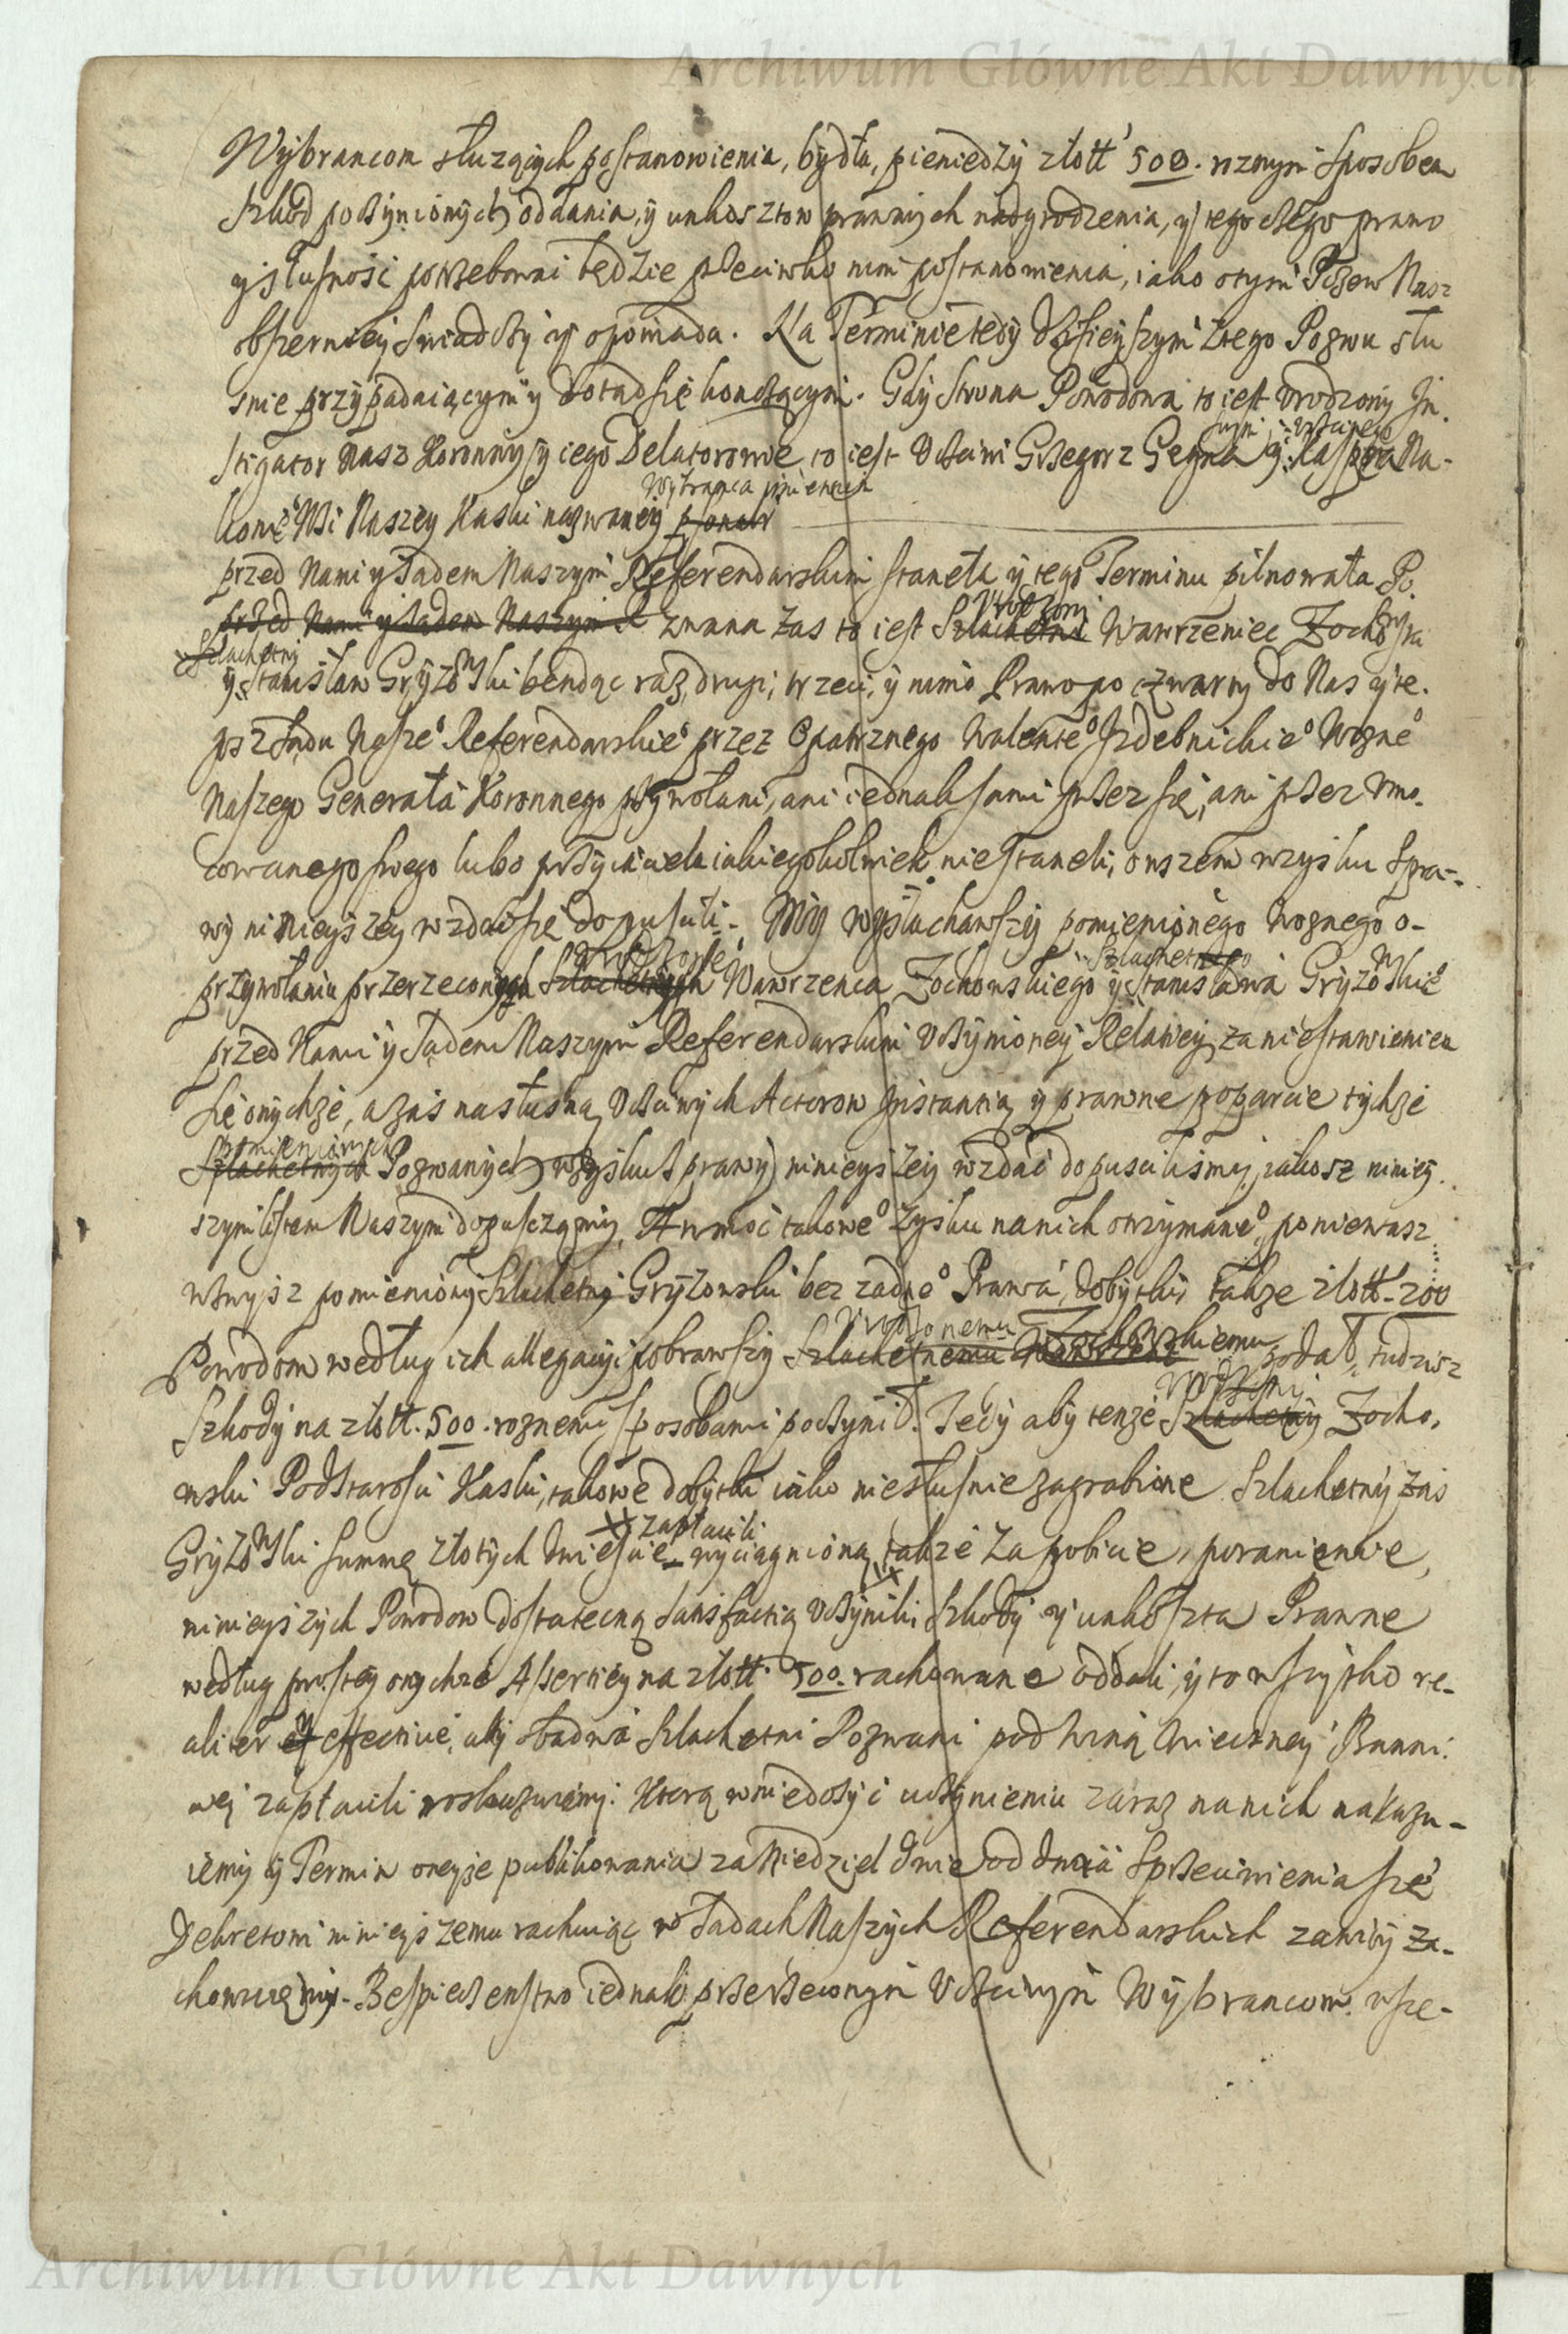 Archiwum Główne Akt Dawnych
Wybrancom słuzących postanowienia, bydła, pieniedzy złott 500. roznym sposobem
szkod poczynionych oddania, y unkosztow prawnych nadgrodzenia, y tego czego prawo
y słusnosci potrzebowac będzie przeciwko nim postanowienia, iako o tym Pozew Nasz
obszerniey swiadczy y opowiada. Na Terminie tedy dzisieyszym z tego Pozwu słu
snie przypadaiącym y dotąd się kończącym. Gdy strona Powodowa to iest Urodzony In.
stigator Nasz Koronny y iego Delatorowie to iest Uczciwi Grzegorz y Kaspra Na-
Wybranca
kone Wsi Naszey Kaski nazwaney
przed Nami y Sądem Naszym Referendarskim staneła y tego Terminu pilnowała Po.
Urodzony
przed Nami y Sądem Naszym zwana zas to iest Szlachetni Wawrzeniec Zochowski
Szlachetny
y Stanisław Gryzowski bendąc raz, drugi, trzeci, y mimo Prawo po czwarty do Nas y te.
go Sądu Nasze⁰ Referendarskie⁰ przez Opatrznego Walente⁰ Izdebnickie⁰ Wozne⁰
Naszego Generała Koronnego przywołani, ani iednak sami przez się, ani przez umo.
cowanego swego lubo przyiaciela iakiegokolwiek nie staneli, owszem w zysku spra-
wy ninieyszey wzdac się dopuscili. My wysłuchawszy pomienionego Woznego o
Szlachetnego
przywołaniu przerzeconych Szlachetnych Wawrzenca Zochowskiego y Stanisława Gryzowskie⁰
przed Nami y Sądem Naszym Referendarskim uczynioney Relatiey, za niestawieniem
się onychze, a zas na słuszną Uczciwych Actorow Instantią y prawne poparcie tychze
pomienionych
Szlachetnych Pozwanych w zysku sprawy ninieyszey wzdac dopuscilismy, iakosz niniey.
szym listem Naszym dopusczamy. A w moc takowe⁰ zysku na nich otrzymane⁰, poniewasz
wzwysz pomieniony Szlachetny Gryzowski bez zadne⁰ Prawa, dobytki, takze złott. 200
Urodzonemu Zochowskiemu
Powodom według ich allegacyi pobrawszy Szlachetnemu oddał, tudziesz
Urodzony
Szkody na złott. 500. roznemi sposobami poczynił. Tedy aby tenze Szlachetny Zocho.
wski Podstarosci Kaski, takowe dobytki iako niesłusnie zagrabione Szlachetny zas
zapłacili
Gryzowski summę złotych dwiescie wyciągnioną, takze za pobicie, poranienie,
ninieyszych Powodow dostateczną satisfactią uczynili szkody y unkoszta Prawne
według prostey onychze Assertiey na złott. 500. rachowane oddali, y to wszystko re-
aliter et effective, aby obadwa Szlachetni Pozwani pod winą wieczney Banni.
cyey zapłacili roskazuiemy. Ktorą w niedosyc uczynieniu zaraz na nich nakazu-
iemy y Termin oneyze publikowania za Niedziel dwie od dnia sprzeciwienia się
Dekretowi ninieyszemu rachuiąc w Sądach Naszych Referendarskich zawity za-
chowuiemy. Bespieczenstwo iednak przerzeconym Uczciwym Wybrancom wsze-
Archiwum Główne Akt Dawnych